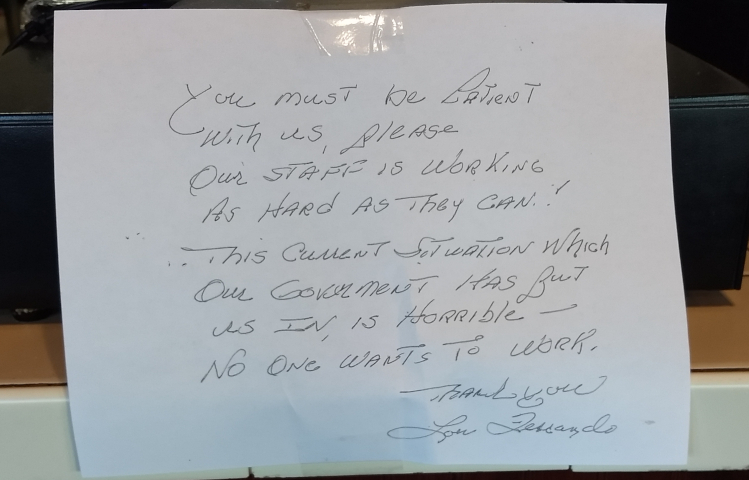 You must be Patient
With us, please
Our STAFF is WORKING
AS HARD AS They CAN..!
This Current Situation Which
Our Goverment HAS Put
us IN, is HORRIBLE —
NO ONE WANTS TO WORK.
Thank you
Lou